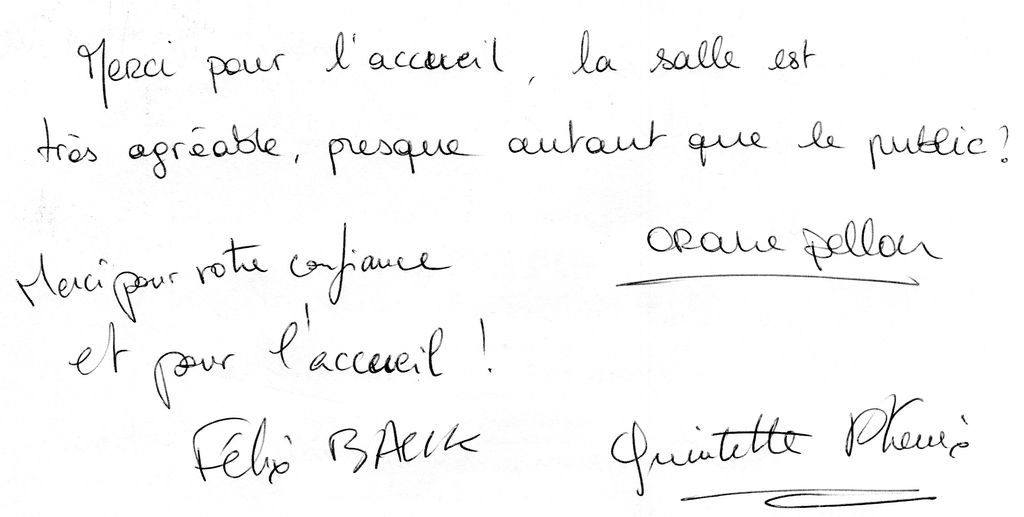 Merci pour l'accueil, la salle est
très agréable, presque autant que le public !
Orane Pellon
Merci pour votre confiance
et pour l'accueil !
Félix BACK
Quintette Phénix